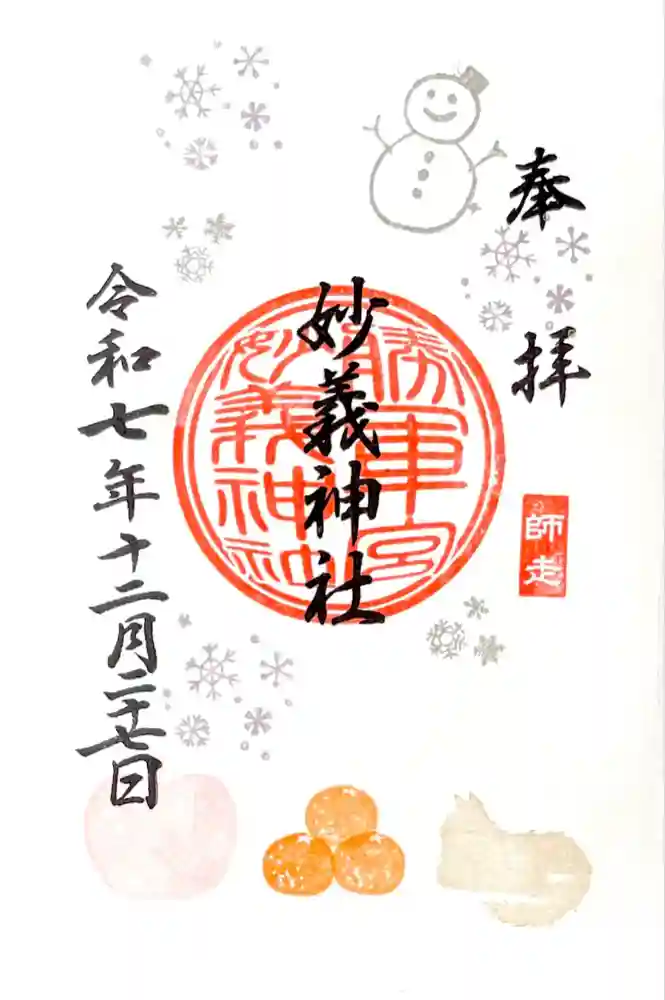 奉拝
師走
勝軍宮
妙義神社
妙義神社
令和七年十二月二十七日